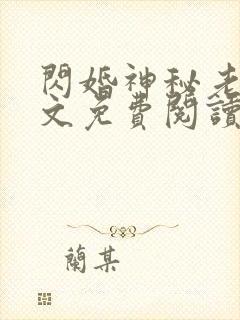 閃婚神秘老
文免費閱讀
蘭某